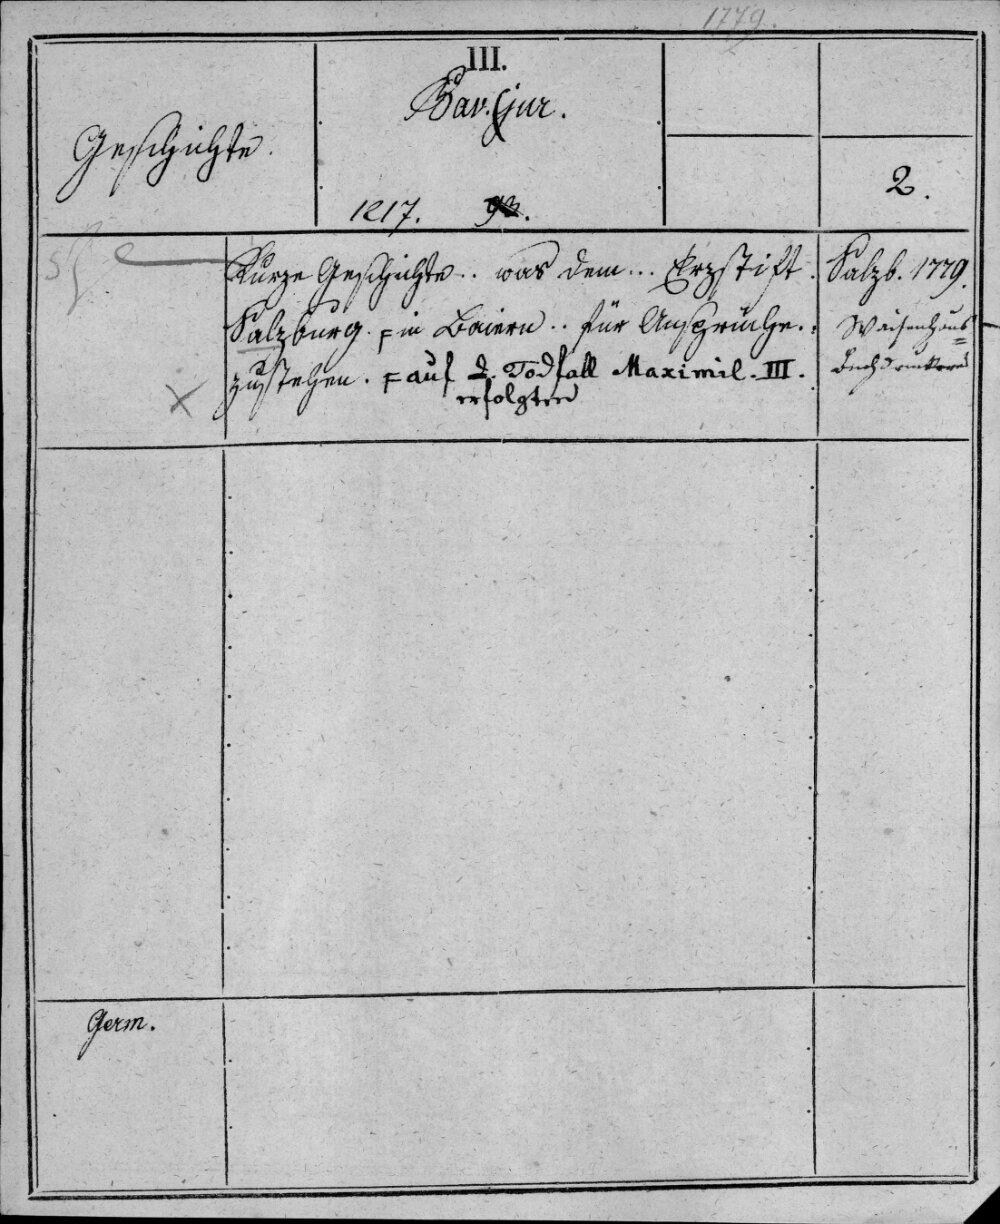 1779.
III.
Bav. jur.
Geschichte.
2.
1217. 93.
Kurze Geschichte .. was dem ... Erzstift.
Salzburg in Baiern .. für Ansprüche.
zustehen. auf d. Todfall Maximil. III.
erfolgten
Salzb. 1779.
Waisenhaus=
Buchdruckerei
Germ.